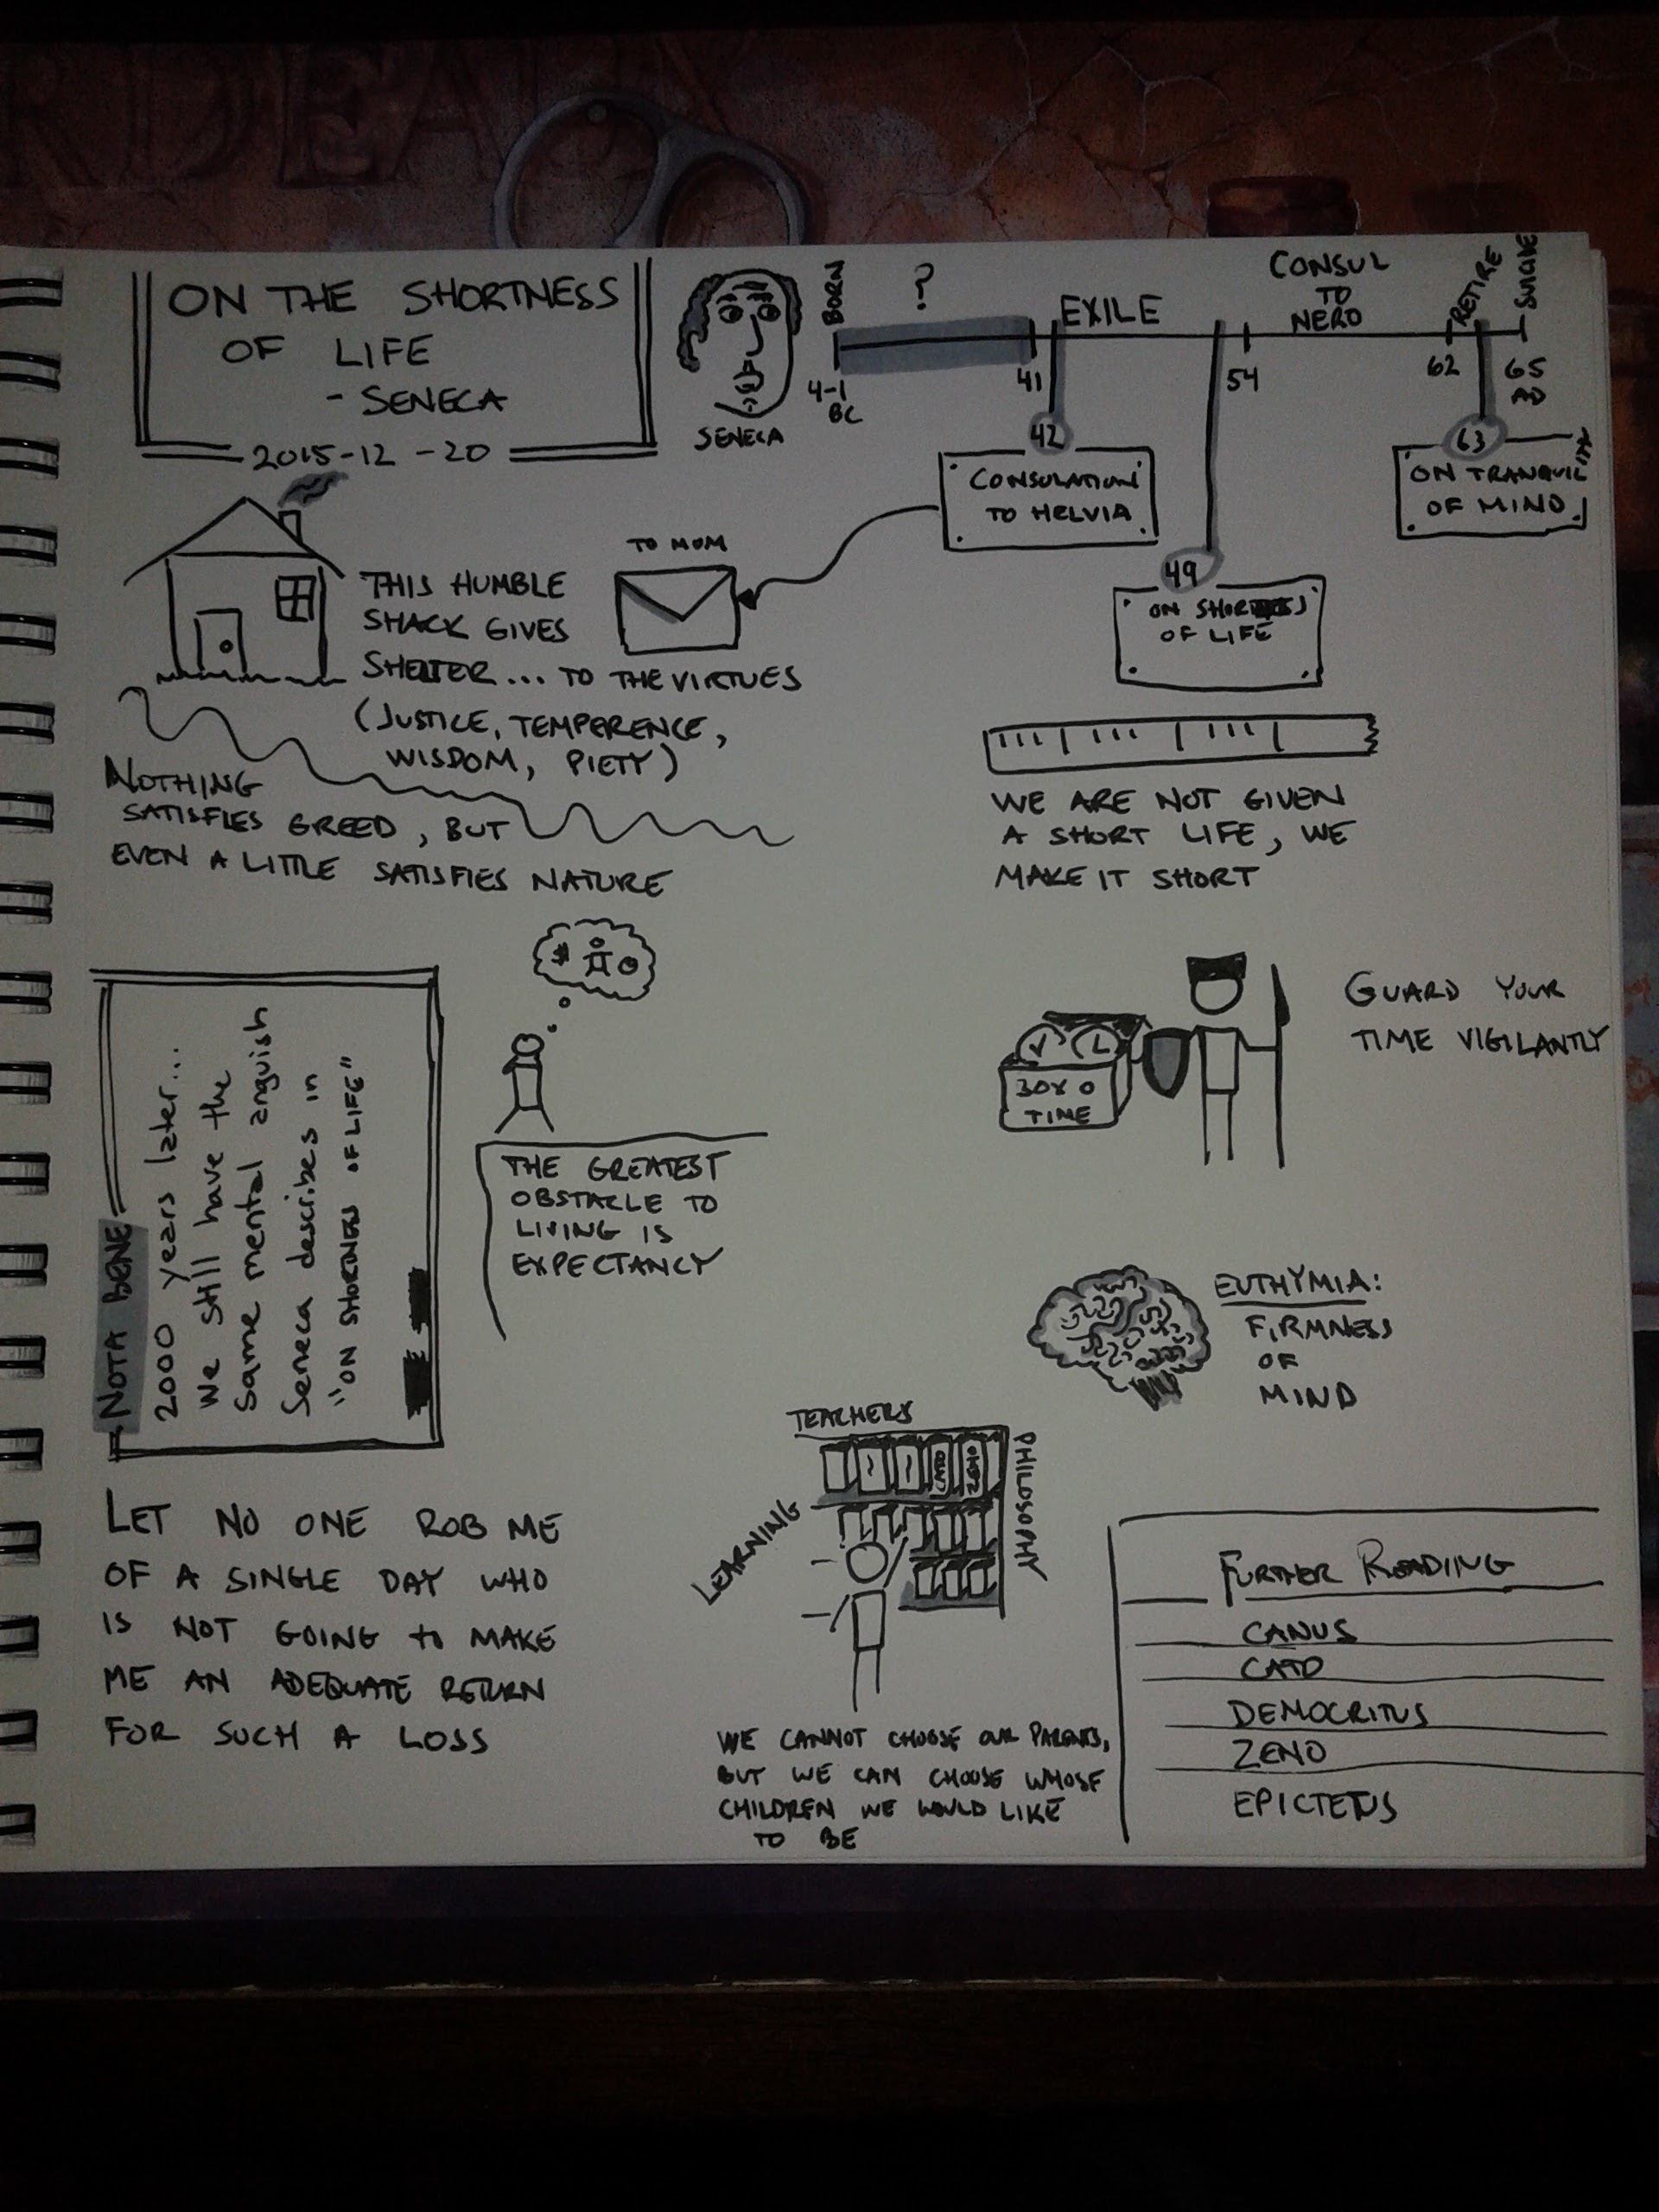 ON THE SHORTNESS
OF LIFE
- SENECA
2015-12-20
SENECA
BORN
?
EXILE
CONSUL
TO
NERO
RETIRE
SUICIDE
4-1
BC
41
54
62
65
AD
42
CONSOLATION
TO HELVIA
49
ON SHORTNESS
OF LIFE
63
ON TRANQUIL
OF MIND
TO MOM
THIS HUMBLE
SHACK GIVES
SHELTER... TO THE VIRTUES
(JUSTICE, TEMPERENCE,
WISDOM, PIETY)
NOTHING
SATISFIES GREED, BUT
EVEN A LITTLE SATISFIES NATURE
WE ARE NOT GIVEN
A SHORT LIFE, WE
MAKE IT SHORT
NOTA BENE
2000 years later...
we still have the
same mental anguish
Seneca describes in
"ON SHORTNES OF LIFE"
$
THE GREATEST
OBSTACLE TO
LIVING IS
EXPECTANCY
BOX O
TIME
GUARD YOUR
TIME VIGILANTLY
EUTHYMIA:
FIRMNESS
OF
MIND
TEACHERS
CATO
ZENO
PHILOSOPHY
LEARNING
LET NO ONE ROB ME
OF A SINGLE DAY WHO
IS NOT GOING to MAKE
ME AN ADEQUATE RETURN
FOR SUCH A LOSS
WE CANNOT CHOOSE OUR PARENTS,
BUT WE CAN CHOOSE WHOSE
CHILDREN WE WOULD LIKE
TO BE
FURTHER READING
CANUS
CATO
DEMOCRITUS
ZENO
EPICTETUS